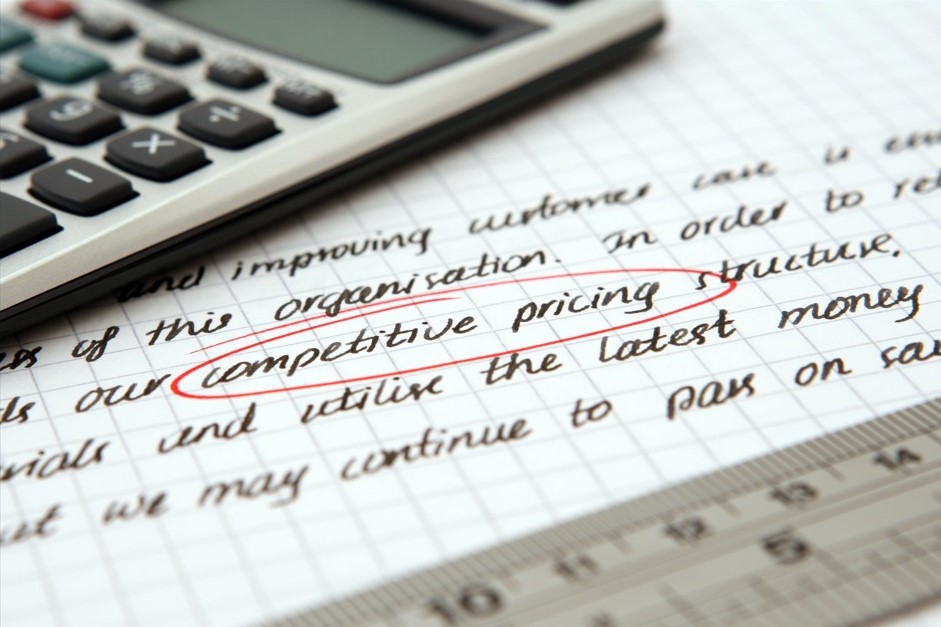 9 % ÷
× −
and improving customer care is
of this organisation. In order to
our competitive pricing structure.
and utilise the latest money
we may continue to pass on
10 11 12 13 14
5